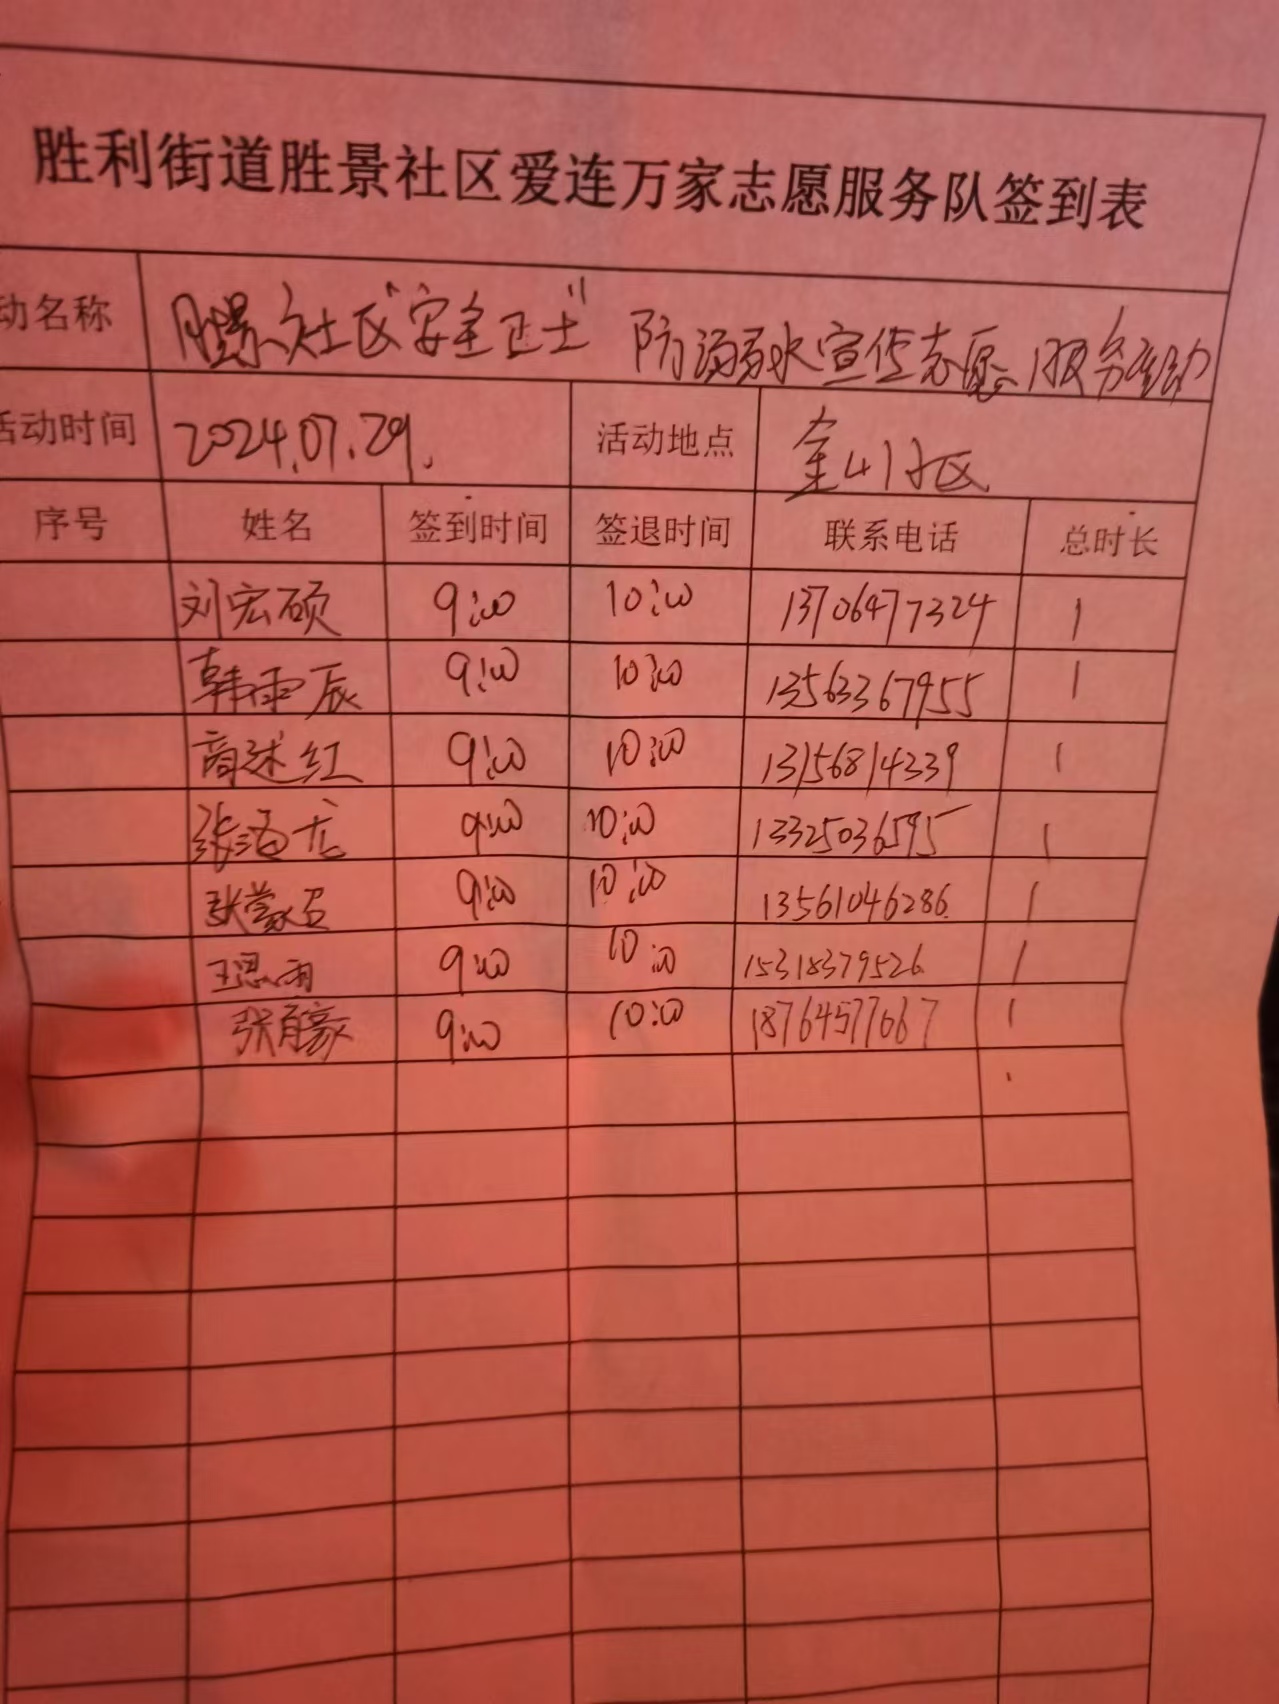 胜利街道胜景社区爱连万家志愿服务队签到表
动名称 胜景社区"安全卫士"防溺水宣传志愿服务活动
活动时间 2024.07.29. 活动地点 金山社区
序号 姓名 签到时间 签退时间 联系电话 总时长
刘宏硕 9:00 10:00 13706477324 1
韩雨辰 9:00 10:00 13563367955 1
商述红 9:00 10:00 13156814339 1
张海龙 9:00 10:00 13325036595 1
张蒙 9:00 10:00 13561046286 1
王思雨 9:00 10:00 15318379526 1
张育豪 9:00 10:00 18764577667 1